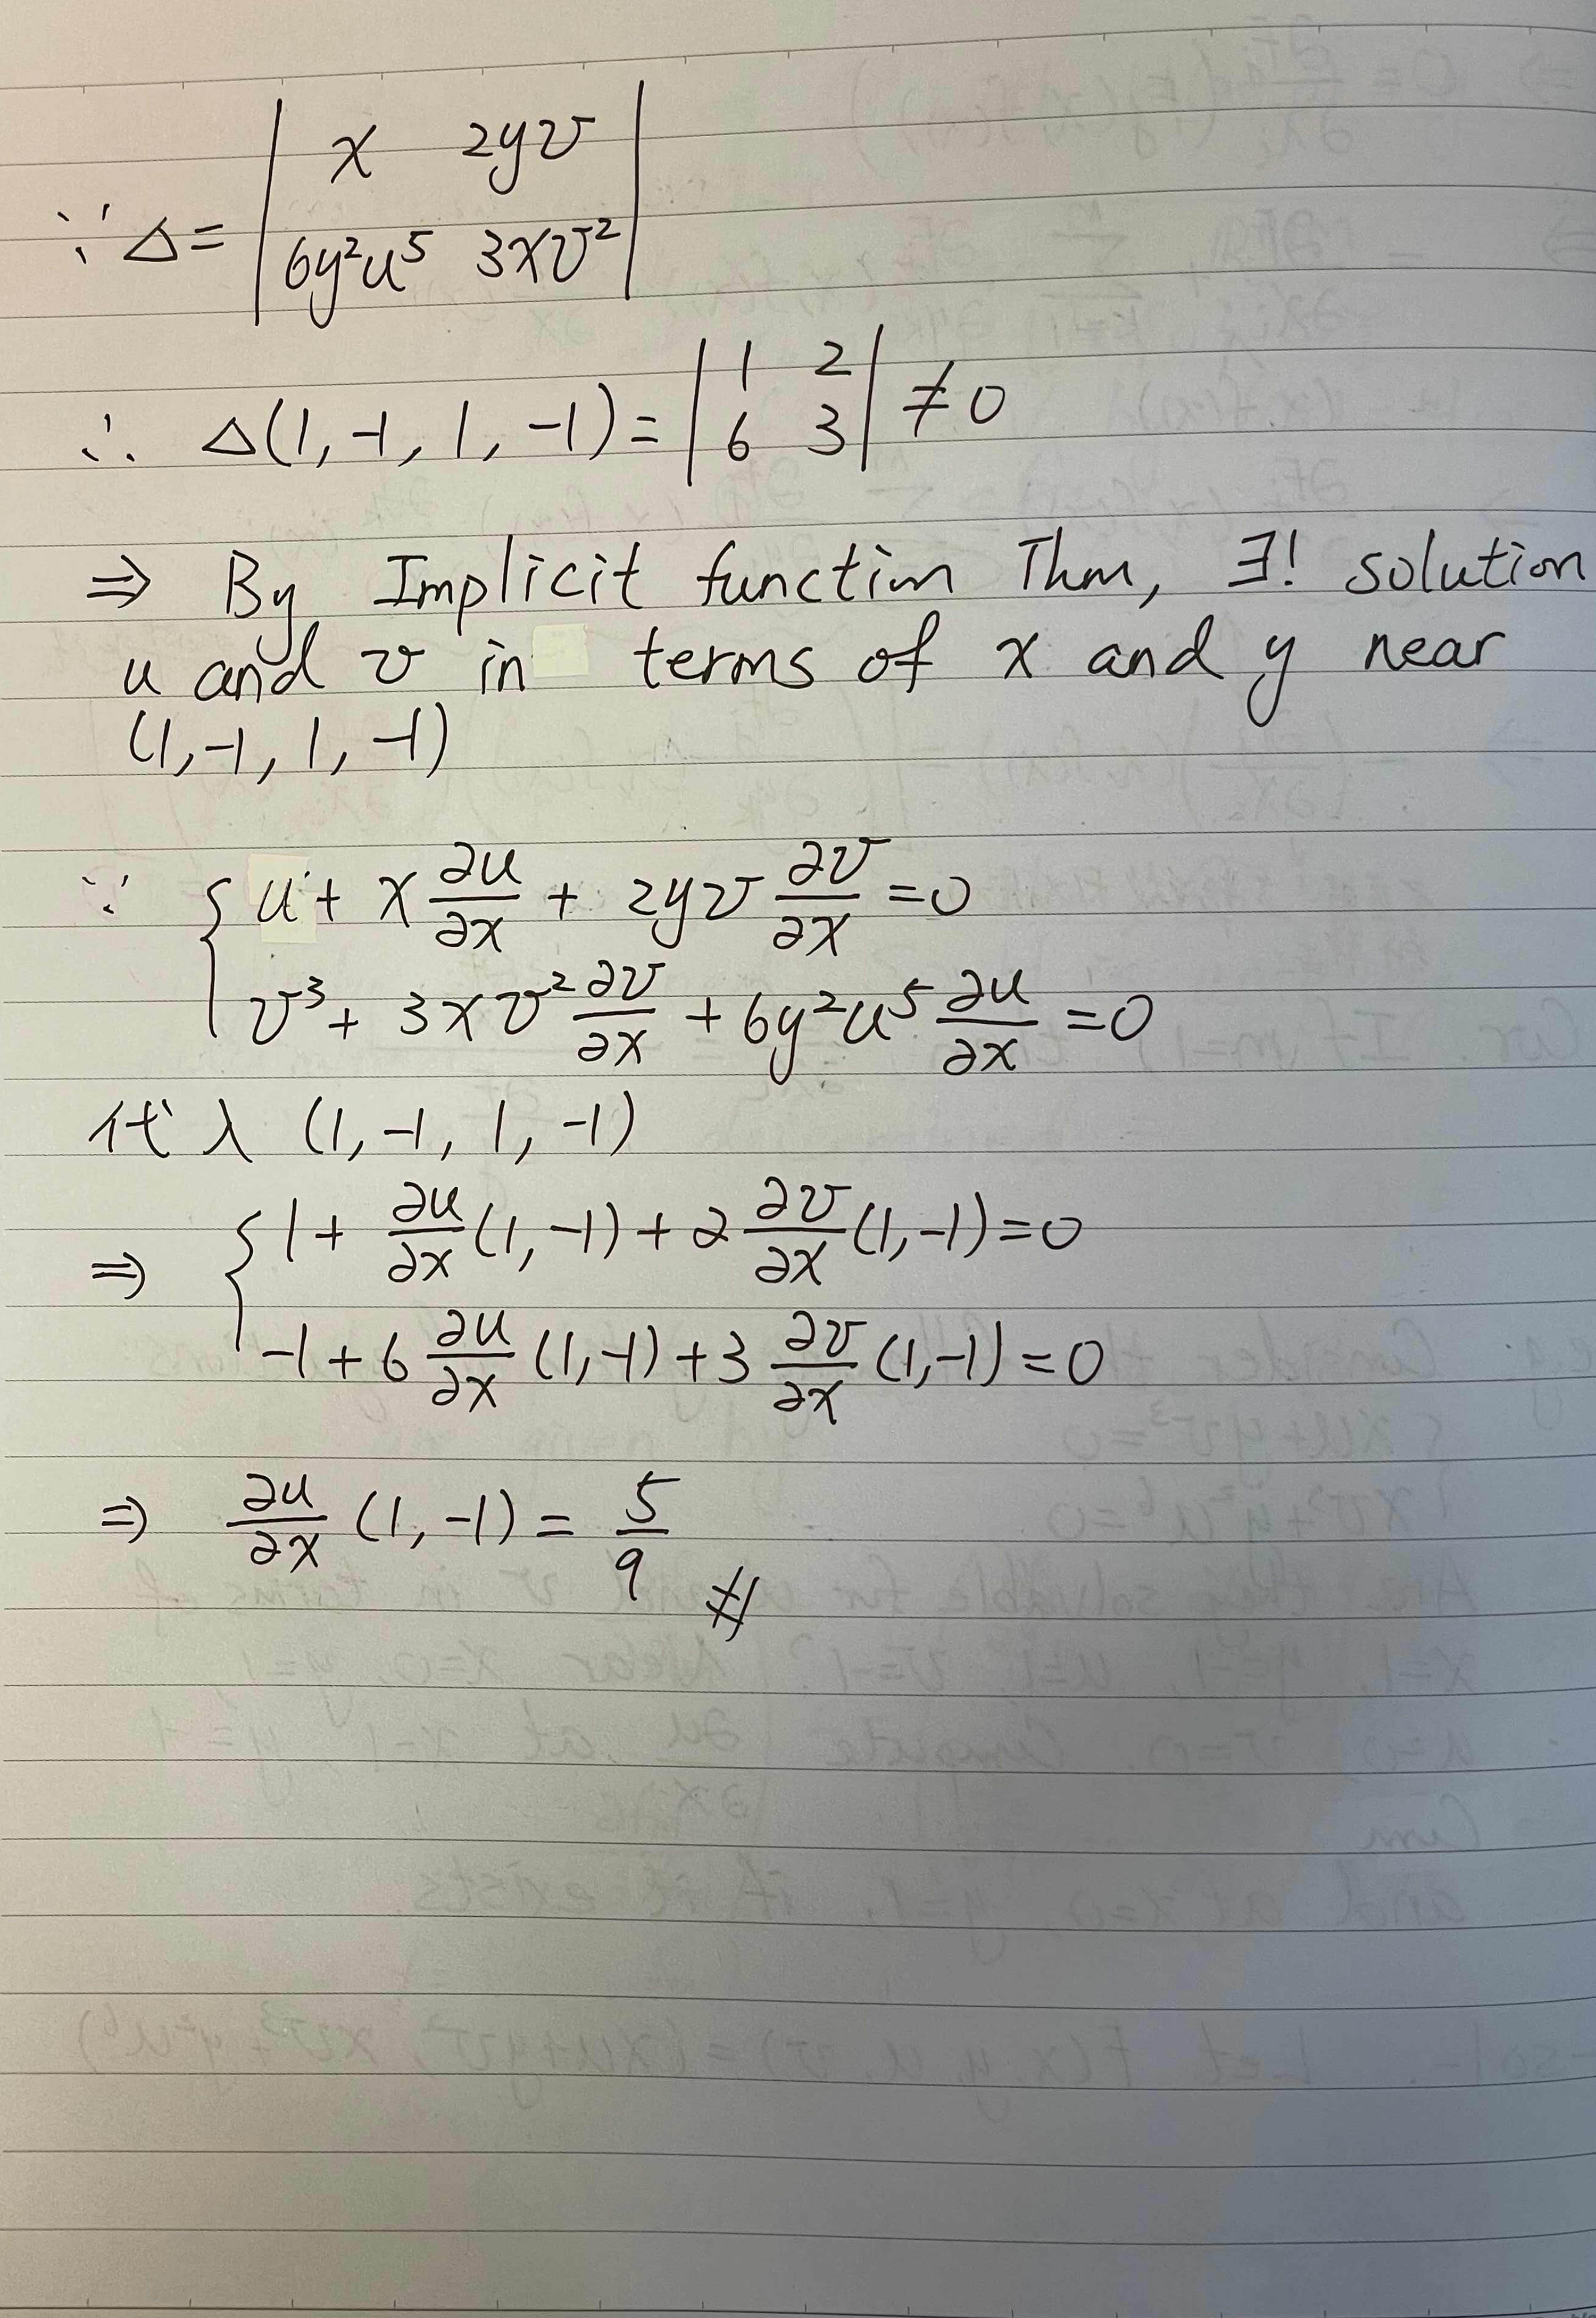 ∵ Δ = | x 2yv |
| 6y²u⁵ 3xv² |
∴ Δ(1, -1, 1, -1) = | 1 2 | ≠ 0
| 6 3 |
⇒ By Implicit function Thm, ∃! solution
u and v in terms of x and y near
(1, -1, 1, -1)
∵ { u + x ∂u/∂x + 2yv ∂v/∂x = 0
v³ + 3xv² ∂v/∂x + 6y²u⁵ ∂u/∂x = 0
代入 (1, -1, 1, -1)
⇒ { 1 + ∂u/∂x (1, -1) + 2 ∂v/∂x (1, -1) = 0
-1 + 6 ∂u/∂x (1, -1) + 3 ∂v/∂x (1, -1) = 0
⇒ ∂u/∂x (1, -1) = 5/9 #